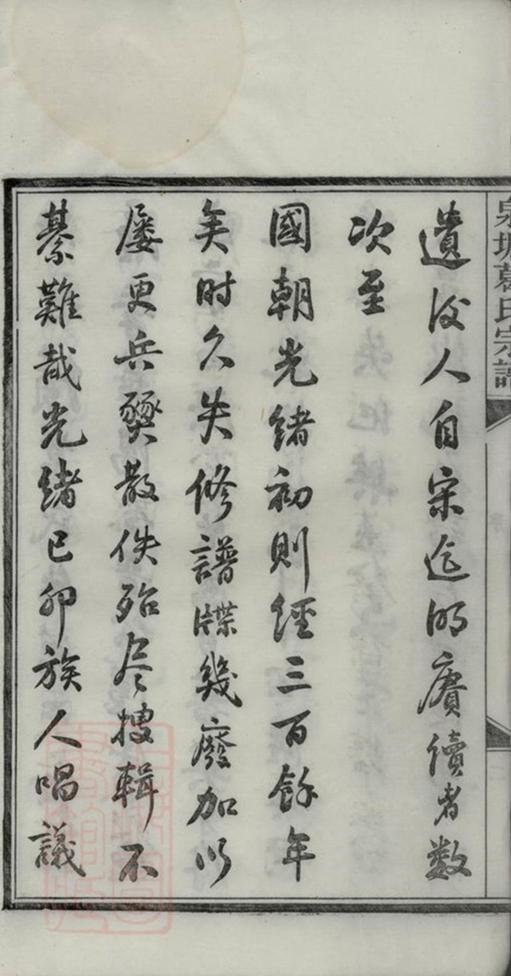 遺後人自宋迄明賡續者數
次至
國朝光緒初則經三百餘年
矣時久失修譜牒幾廢加以
屡更兵燹散佚殆尽搜輯不
綦難哉光緒己卯族人唱議